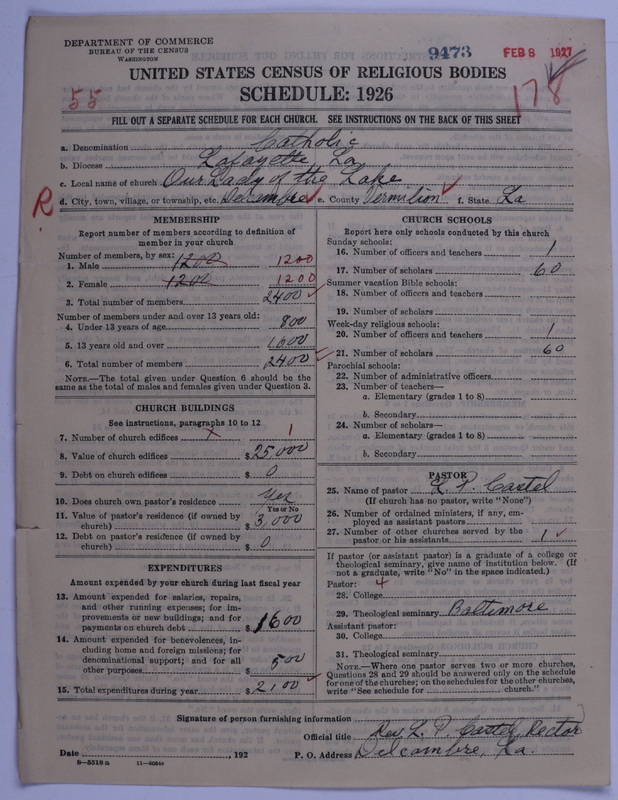 DEPARTMENT OF COMMERCE
BUREAU OF THE CENSUS
WASHINGTON
9473
FEB 8 1927
UNITED STATES CENSUS OF RELIGIOUS BODIES
55
SCHEDULE: 1926
178
FILL OUT A SEPARATE SCHEDULE FOR EACH CHURCH. SEE INSTRUCTIONS ON THE BACK OF THIS SHEET
a. Denomination Catholic
b. Diocese Lafayette, La
c. Local name of church Our Lady of the Lake
R
d. City, town, village, or township, etc. Delcambre e. County Vermilion f. State La
MEMBERSHIP
Report number of members according to definition of
member in your church
Number of members, by sex:
1. Male 1200 1200
2. Female 1200 1200
3. Total number of members 2400
Number of members under and over 13 years old:
4. Under 13 years of age 800
5. 13 years old and over 1600
6. Total number of members 2400
NOTE.—The total given under Question 6 should be the
same as the total of males and females given under Question 3.
CHURCH BUILDINGS
See instructions, paragraphs 10 to 12
7. Number of church edifices 1
8. Value of church edifices $ 25,000
9. Debt on church edifices $ 0
10. Does church own pastor's residence Yes
Yes or No
11. Value of pastor's residence (if owned by
church) $ 3,000
12. Debt on pastor's residence (if owned by
church) $ 0
EXPENDITURES
Amount expended by your church during last fiscal year
13. Amount expended for salaries, repairs,
and other running expenses; for im-
provements or new buildings; and for
payments on church debt $ 1600
14. Amount expended for benevolences, in-
cluding home and foreign missions; for
denominational support; and for all
other purposes $ 500
15. Total expenditures during year $ 2100
CHURCH SCHOOLS
Report here only schools conducted by this church
Sunday schools:
16. Number of officers and teachers 1
17. Number of scholars 60
Summer vacation Bible schools:
18. Number of officers and teachers
19. Number of scholars
Week-day religious schools:
20. Number of officers and teachers 1
21. Number of scholars 60
Parochial schools:
22. Number of administrative officers
23. Number of teachers—
a. Elementary (grades 1 to 8)
b. Secondary
24. Number of scholars—
a. Elementary (grades 1 to 8)
b. Secondary
PASTOR
25. Name of pastor L. P. Castel
(If church has no pastor, write "None")
26. Number of ordained ministers, if any, em-
ployed as assistant pastors
27. Number of other churches served by the
pastor or his assistants 1
If pastor (or assistant pastor) is a graduate of a college or
theological seminary, give name of institution below. (If
not a graduate, write "No" in the space indicated.)
Pastor: 4
28. College
29. Theological seminary Baltimore
Assistant pastor:
30. College
31. Theological seminary
NOTE.—Where one pastor serves two or more churches,
Questions 28 and 29 should be answered only on the schedule
for one of the churches; on the schedules for the other churches,
write "See schedule for church."
Signature of person furnishing information
Official title Rev. L. P. Castel, Rector
Date , 192 P. O. Address Delcambre, La.
8—5518a 11—9034a